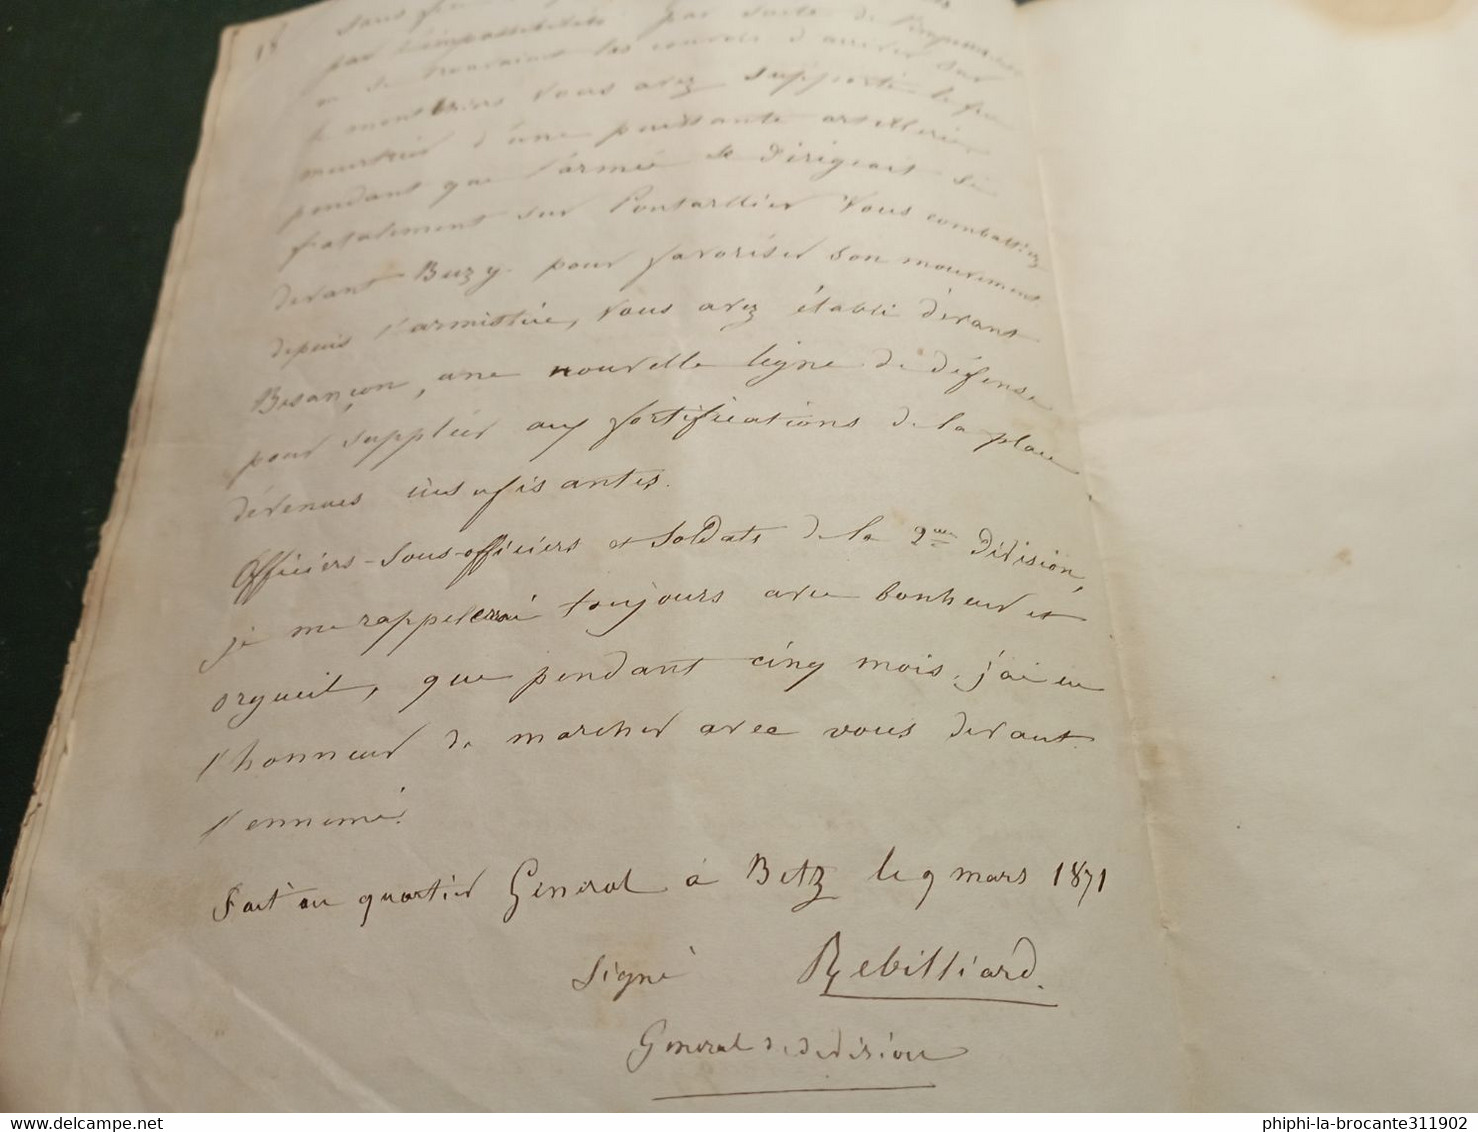 18 Sans
par l'impossibilité par suite de
où se trouvaient les convois d'arriver sur
le mont vous avez supporté le feu
meurtrier d'une puissante artillerie,
pendant que l'armée se dirigeait si
fatalement sur Pontarllier Vous combattiez
devant Buzy. pour favoriser son mouvement
depuis l'armistice, Vous avez établi devant
Besançon, une nouvelle ligne de défense
pour suppléer aux fortifications de la place
devenues insufisantes.
Officiers-Sous-officiers et Soldats de la 2eme Division,
je me rappelerai toujours avec bonheur et
orgueil, que pendant cinq mois, j'ai eu
l'honneur de marcher avec vous devant
l'ennemi.
Fait au quartier Général à Betz le 9 mars 1871
Signé Rebilliard.
Général de division
phiphi-la-brocante311902